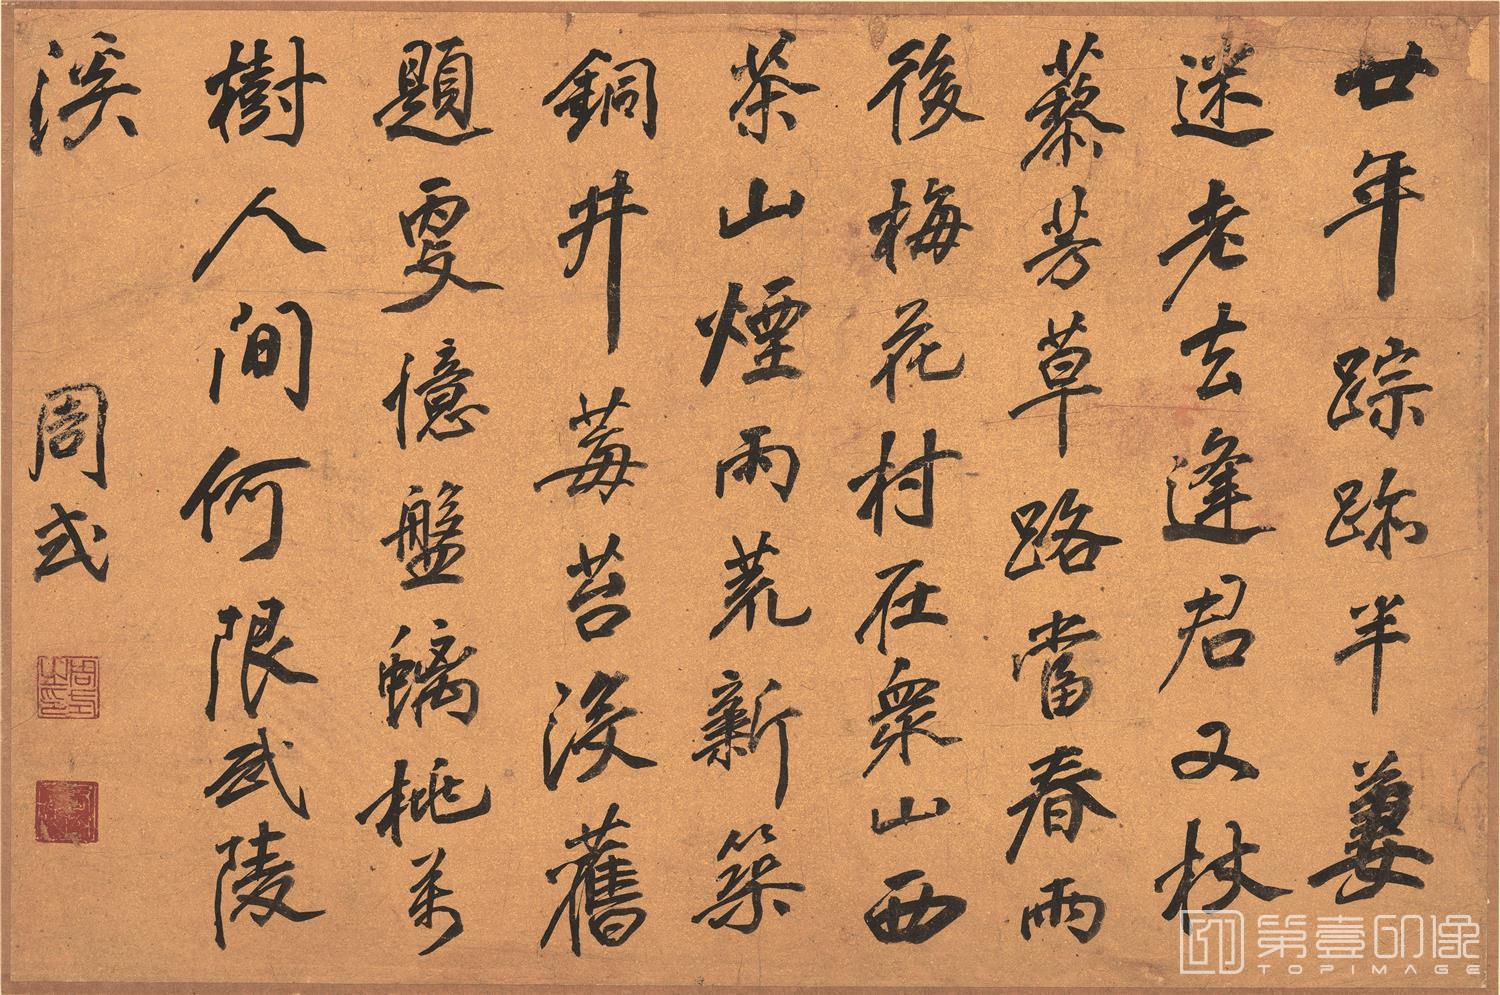 廿年踪跡半萋
迷老去逢君又杖
藜芳草路當春雨
後梅花村在衆山西
茶山煙雨荒新築
銅井莓苔沒舊
題更憶盤螭桃萬
樹人間何限武陵
溪
周式
第壹印像
TOPIMAGE